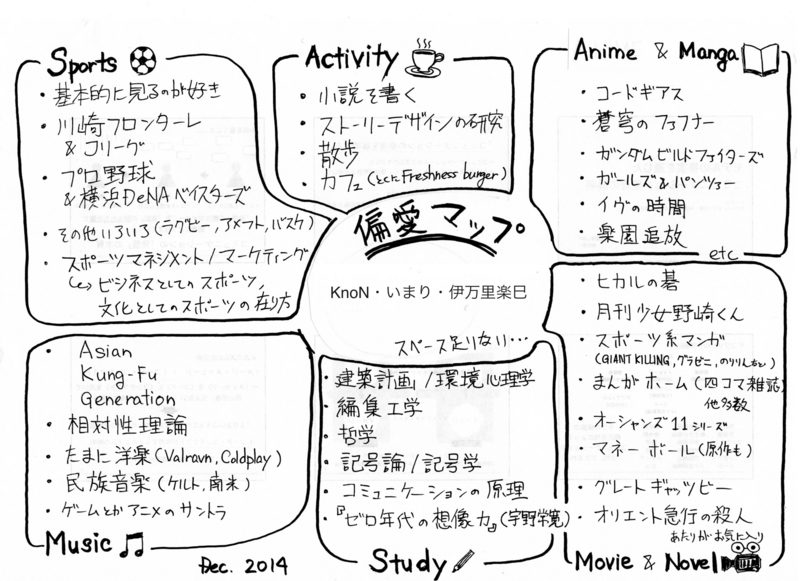 Sports
・基本的に見るのが好き
・川崎フロンターレ
& Jリーグ
・プロ野球
& 横浜DeNAベイスターズ
・その他いろいろ(ラグビー,アメフト,バスケ)
・スポーツマネジメント/マーケティング
↳ビジネスとしてのスポーツ,
文化としてのスポーツの在り方
Activity
・小説を書く
・ストーリーデザインの研究
・散歩
・カフェ(とくにFreshness burger)
Anime & Manga
・コードギアス
・蒼穹のファフナー
・ガンダムビルドファイターズ
・ガールズ&パンツァー
・イヴの時間
・楽園追放
etc
偏愛マップ
KnoN・いまり・伊万里楽巳
スペース足りない…
・Asian
Kung-Fu
Generation
・相対性理論
・たまに洋楽(Valravn,Coldplay)
・民族音楽(ケルト,南米)
・ゲームとかアニメのサントラ
Music
Dec. 2014
・建築計画/環境心理学
・編集工学
・哲学
・記号論/記号学
・コミュニケーションの原理
・『ゼロ年代の想像力』(宇野常寛)
Study
・ヒカルの碁
・月刊少女野崎くん
・スポーツ系マンガ
(GIANT KILLING,グラゼニ,のりりんなど)
・まんがホーム(四コマ雑誌)
他多数
・オーシャンズ11シリーズ
・マネーボール(原作も)
・グレートギャッツビー
・オリエント急行の殺人
あたりがお気に入り
Movie & Novel